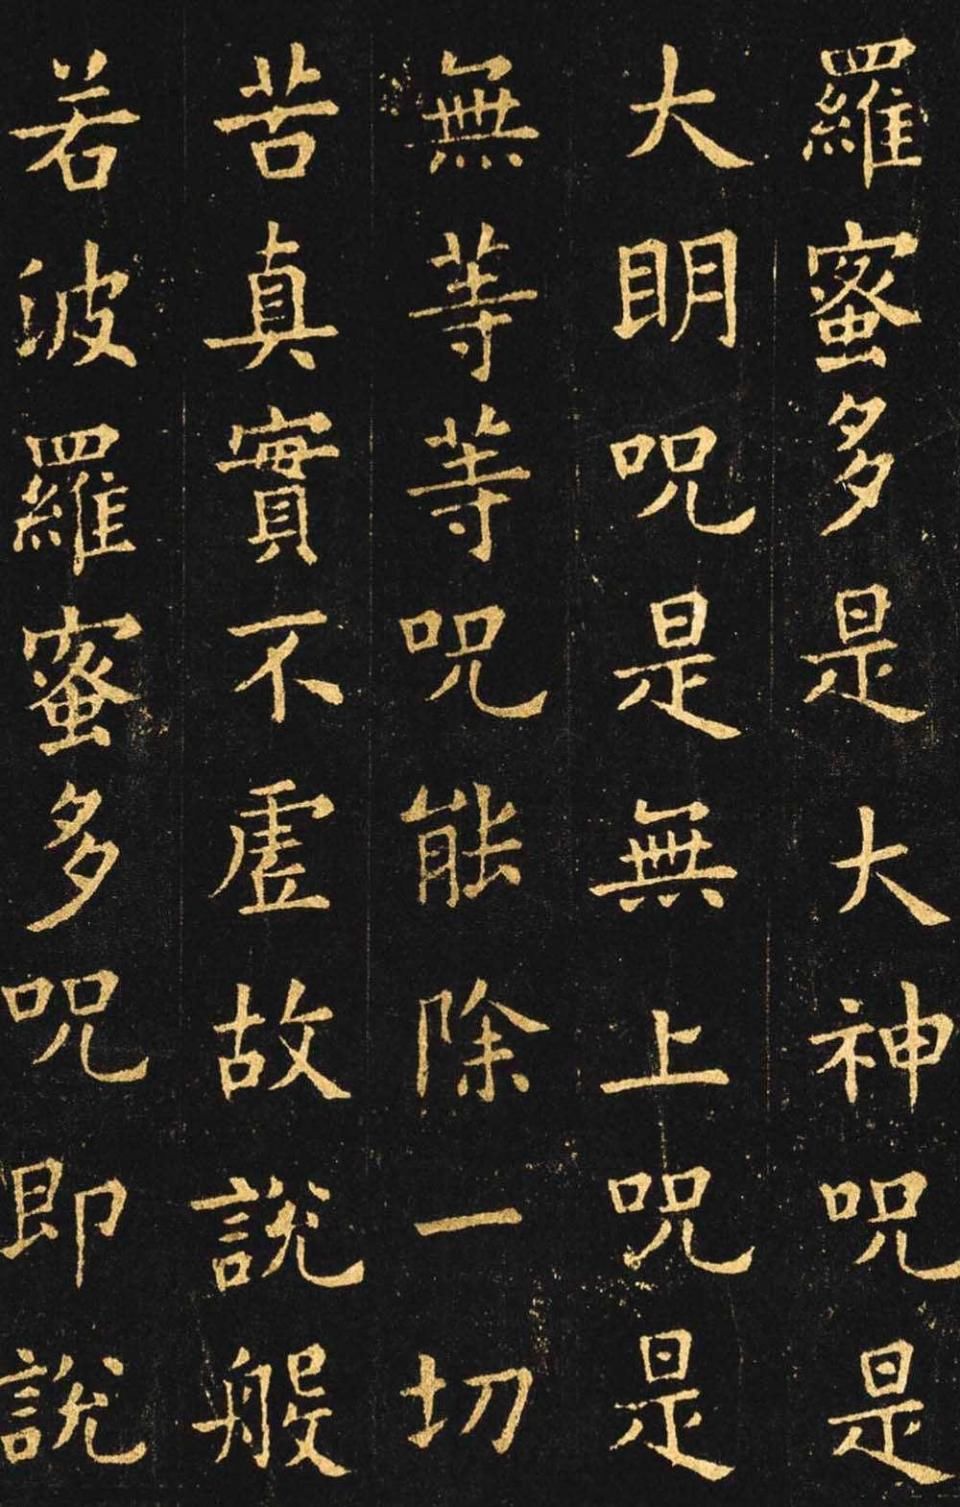 羅蜜多是大神咒是
大明咒是無上咒是
無等等咒能除一切
苦真實不虛故說般
若波羅蜜多咒即說